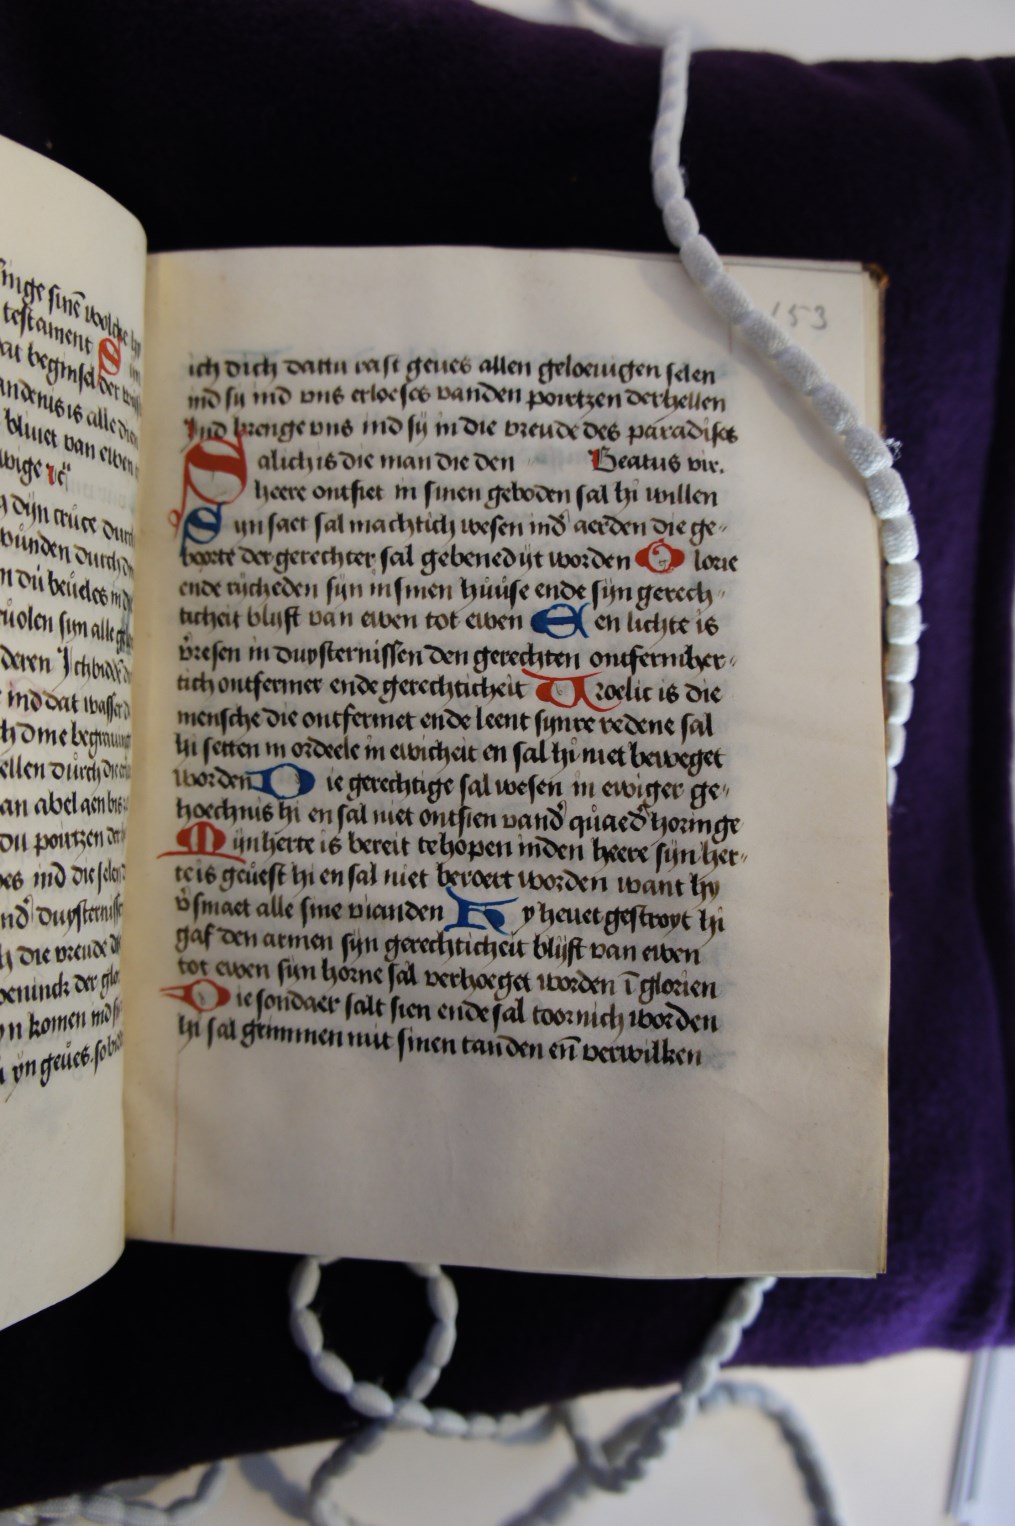 inge sinē wolche hy
testament S
at beginsel der
andenis is alle die
bliuet van ewen
wige
dijn cruce durch
wunden durch
n du beueles in
uolen sijn alle
deren Ich bidde
ind dat wasser
th dine begrauunge
ellen durch die
an abel aen bis
du portzen der
es ind die selen
nd duysternisse
h die vreude d
oeninck der glo
n komen ind
yn geues. so bid
153
ich dich dattu rast geues allen geloeuigen selen
ind sij ind vns erloeses vanden portzen der hellen
Ind brenge vns ind sij in die vreude des paradises
Salich is die man die den Beatus vir.
heere ontsiet in sinen geboden sal hi willen
Syn saet sal machtich wesen ind aerden die ge-
boerte der gerechter sal gebenedijt worden Glorie
ende rijcheden sijn in sinen huuse ende sijn gerech-
ticheit blijft van ewen tot ewen Een lichte is
vresen in duysternissen den gerechten ontfermher-
tich ontfermer ende gerechticheit Vroelic is die
mensche die ontfermet ende leent synre redene sal
hi setten in ordeele in ewicheit en sal hi niet beweget
worden Die gerechtige sal wesen in ewiger ge-
hoechnis hi en sal niet ontsien vand quaed horinge
Mijn herte is bereit te hopen inden heere sijn her-
te is geuest hi en sal niet beroert worden want hy
vsmaet alle sine vianden Hy heuet gestroyt hi
gaf den armen sijn gerechticheit blijft van ewen
tot ewen sijn horne sal verhoeget worden ī glorien
Die sondaer salt sien ende sal toornich worden
hi sal grimmen mit sinen tanden eñ verwilken